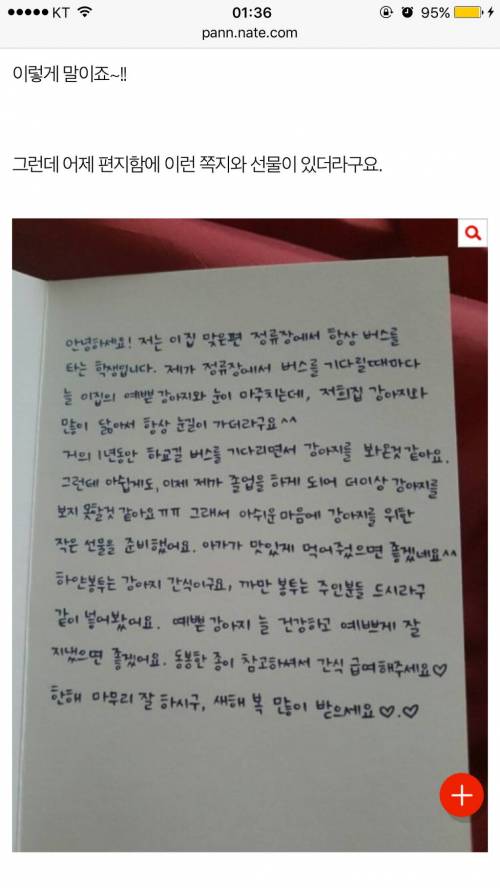 KT 01:36 95%
pann.nate.com
이렇게 말이죠~!!
그런데 어제 편지함에 이런 쪽지와 선물이 있더라구요.
안녕하세요! 저는 이집 맞은편 정류장에서 항상 버스를
타는 학생입니다. 제가 정류장에서 버스를 기다릴때마다
늘 이집의 예쁜 강아지와 눈이 마주치는데, 저희집 강아지와
많이 닮아서 항상 눈길이 가더라구요^^
거의 1년동안 하교길 버스를 기다리면서 강아지를 봐온것 같아요.
그런데 아쉽게도, 이제 제가 졸업을 하게 되어 더이상 강아지를
보지 못할것 같아요ㅠㅠ 그래서 아쉬운 마음에 강아지를 위한
작은 선물을 준비했어요. 아가가 맛있게 먹어줬으면 좋겠네요^^
하얀봉투는 강아지 간식이구요, 까만 봉투는 주인분들 드시라구
같이 넣어봤어요. 예쁜 강아지 늘 건강하고 예쁘게 잘
지냈으면 좋겠어요. 동봉한 종이 참고하셔서 간식 급여해주세요♡
한해 마무리 잘 하시구, 새해 복 많이 받으세요♡.♡